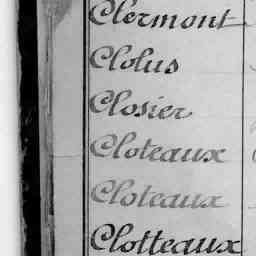 Clermont
Clolus
Closier
Cloteaux
Cloteaux
Clotteaux